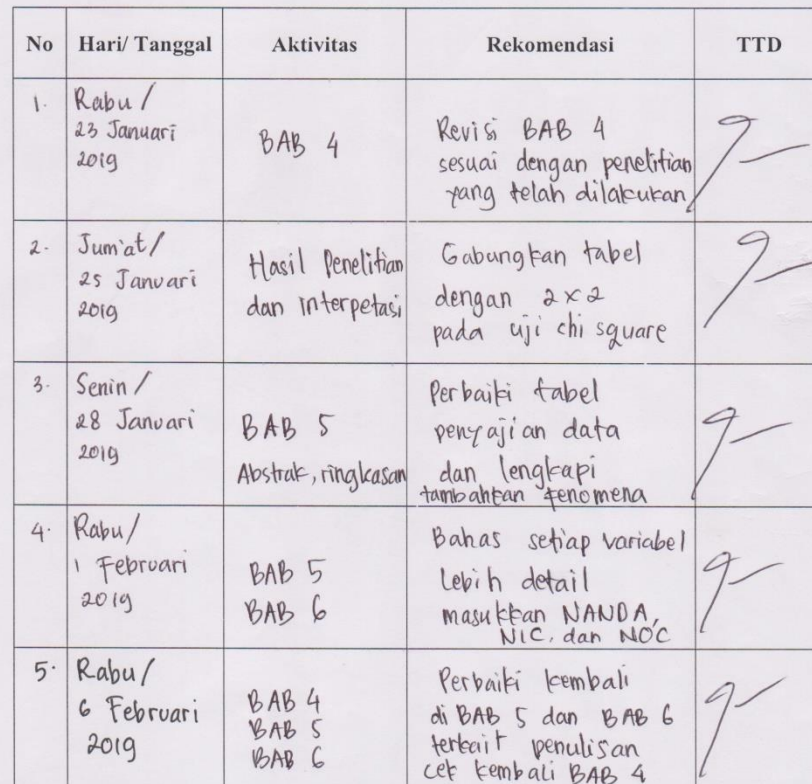 No Hari/ Tanggal Aktivitas Rekomendasi TTD
1. Rabu /
23 Januari
2019
BAB 4
Revisi BAB 4
sesuai dengan penelitian
yang telah dilakukan
2. Jum'at /
25 Januari
2019
Hasil Penelitian
dan interpetasi
Gabungkan tabel
dengan 2 x 2
pada uji chi square
3. Senin /
28 Januari
2019
BAB 5
Abstrak, ringkasan
Perbaiki tabel
penyajian data
dan lengkapi
tambahkan fenomena
4. Rabu /
1 Februari
2019
BAB 5
BAB 6
Bahas setiap variabel
Lebih detail
masukkan NANDA,
NIC, dan NOC
5. Rabu /
6 Februari
2019
BAB 4
BAB 5
BAB 6
Perbaiki kembali
di BAB 5 dan BAB 6
terkait penulisan
cek kembali BAB 4